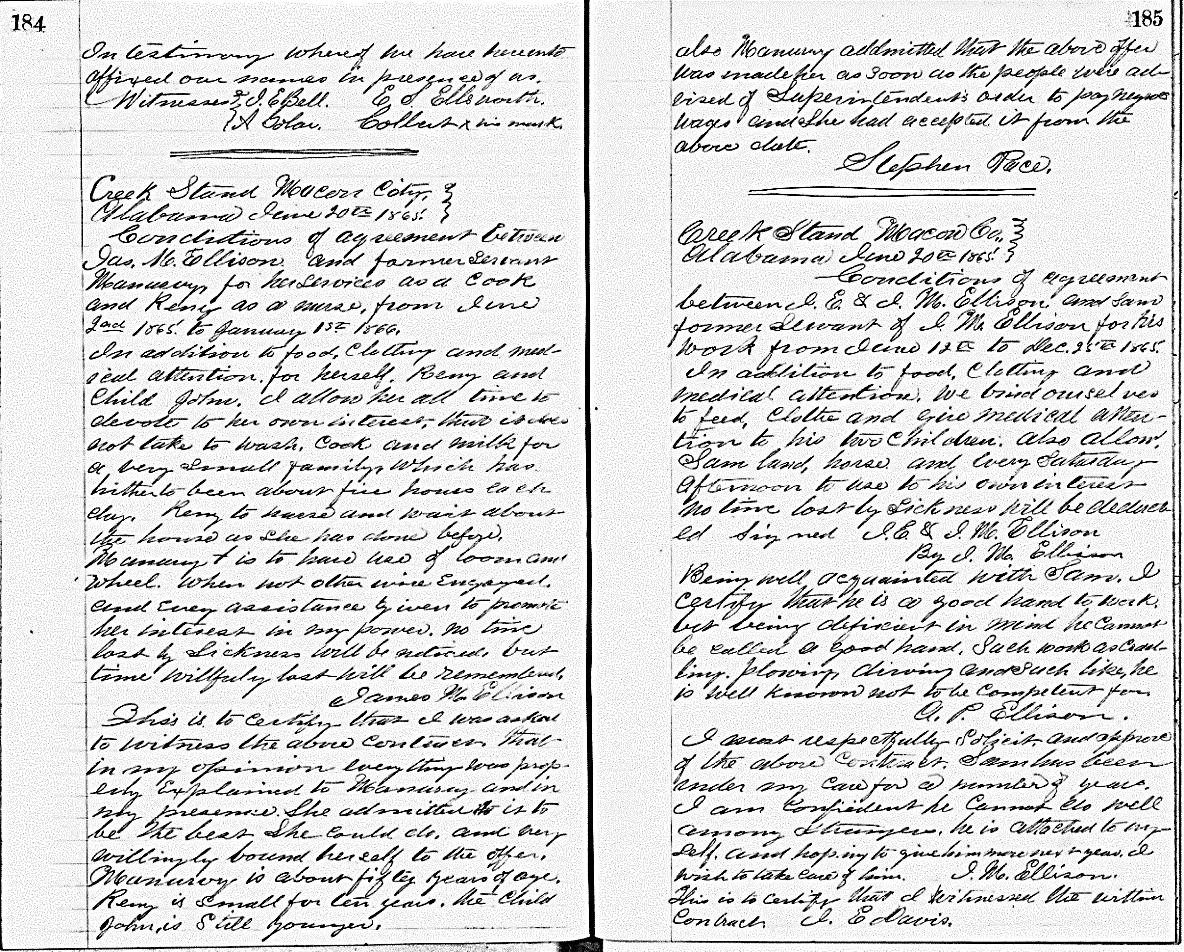 184
In testimony whereof we have hereunto
affixed our names in presence of us.
Witnesses } J. E. Bell. E. S. Ellsworth.
} A Golar. Colbert x his mark.
Creek Stand Macon City, }
Alabama June 20th 1865. }
Conditions of agreement between
Jas. M. Ellison and former servant
Manurvy, for her services as a cook
and Reny as a nurse, from June
2nd 1865. to January 1st 1866.
In addition to food, Clothing and med-
ical attention, for herself, Reny and
Child John. I allow her all time to
devote to her own interest, that it does
not take to wash, cook and milk for
a very small family, which has
hitherto been about five hours each
day. Reny to nurse and wait about
the house as she has done before.
Manurvy is to have use of loom and
wheel. When not otherwise Engaged.
and every assistance given to promote
her interest in my power. no time
lost by Sickness will be noticed, but
time willfully lost will be remembered,
James M. Ellison
This is to certify that I was asked
to witness the above contract. that
in my opinion everything was prop-
erly Explained to Manurvy and in
my presence. She admitted it to
be the best She could do. and very
willingly bound herself to the offer.
Manurvy is about fifty years of age.
Reny is small for ten years. the Child
John, is Still younger.
185
also Manurvy addmitted that the above offer
was made her as soon as the people were ad-
vised of Superintendent's order to pay negroes
wages and She had accepted it from the
above date.
Stephen Pace.
Creek Stand Macon Co., }
Alabama June 20th 1865. }
Conditions of agreement
between J. E. & J. M. Ellison, and Sam
former Servant of J. M. Ellison for his
work from June 12th to Dec. 25th 1865.
In addition to food, Clothing and
medical attention. We bind ourselves
to feed, Clothe and give medical atten-
tion to his two children. also allow
Sam land, horse and every Saturday
afternoon to use to his own interest
No time lost by Sickness will be deduct-
ed Signed J. E. & J. M. Ellison
By J. M. Ellison
Being well acquainted with Sam. I
certify that he is a good hand to work.
but being deficient in mind he cannot
be called a good hand. Such work as
plowing, driving and such like, he
is well known not to be competent for.
A. P. Ellison.
I most respectfully Solicit, and approve
of the above contract. Sam has been
under my care for a number of years.
I am confident he Cannot do well
among Strangers. he is attached to my-
self. and hoping to give him more next year. I
wish to take care of him. J. M. Ellison.
This is to certify that I witnessed the within
Contract J. E. Davis.